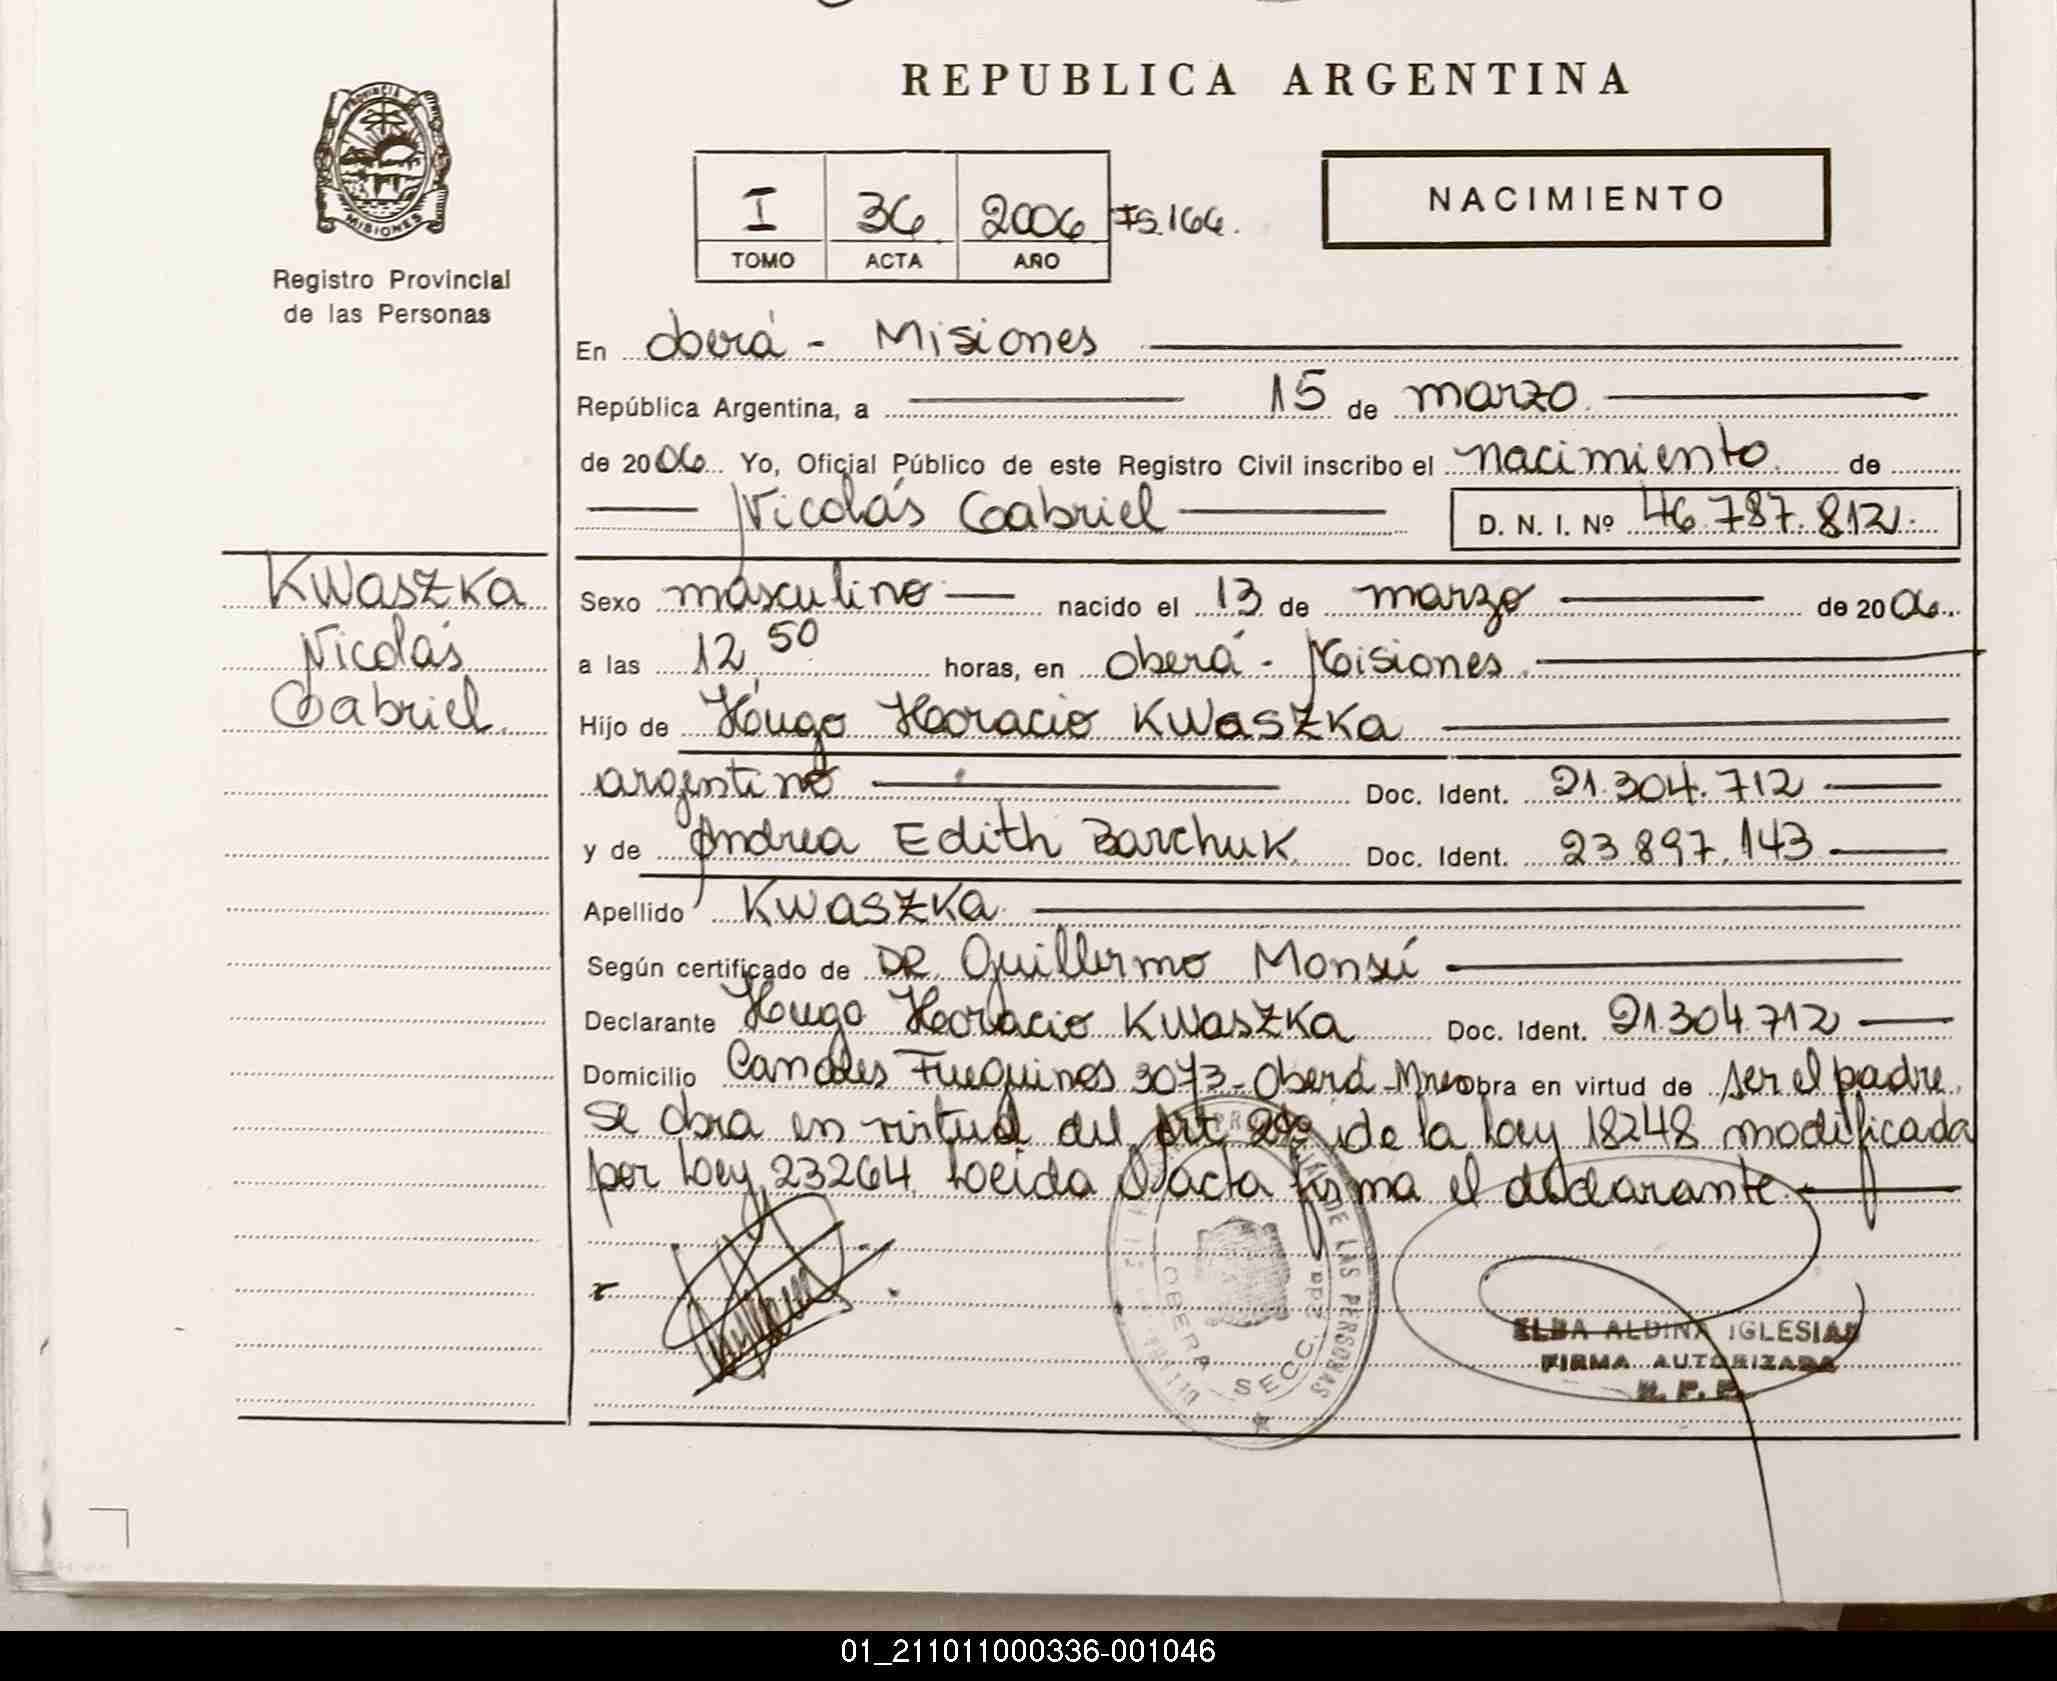 REPUBLICA ARGENTINA
PROVINCIA DE
MISIONES
Registro Provincial
de las Personas
I 36 2006 Fs.166.
TOMO ACTA AÑO
NACIMIENTO
En Oberá - Misiones
República Argentina, a 15 de marzo
de 2006 Yo, Oficial Público de este Registro Civil inscribo el nacimiento de
Nicolás Gabriel D. N. I. Nº 46.787.812.
Kwaszka
Nicolás
Gabriel.
Sexo masculino nacido el 13 de marzo de 2006
a las 12 50 horas, en Oberá - Misiones
Hijo de Hugo Horacio Kwaszka
argentino Doc. Ident. 21.304.712
y de Andrea Edith Barchuk Doc. Ident. 23.897.143
Apellido Kwaszka
Según certificado de DR. Guillermo Monsú
Declarante Hugo Horacio Kwaszka Doc. Ident. 21.304.712
Domicilio Canales Fueguinos 3073 - Oberá - Mnes obra en virtud de ser el padre.
se obra en virtud del Art 2do de la Ley 18248 modificada
por Ley 23264. Leida el acta firma el declarante.
DE LAS PERSONAS
OBERA SECC. 2da
ELBA ALDINA IGLESIAS
FIRMA AUTORIZADA
R. P. P.
01_211011000336-001046